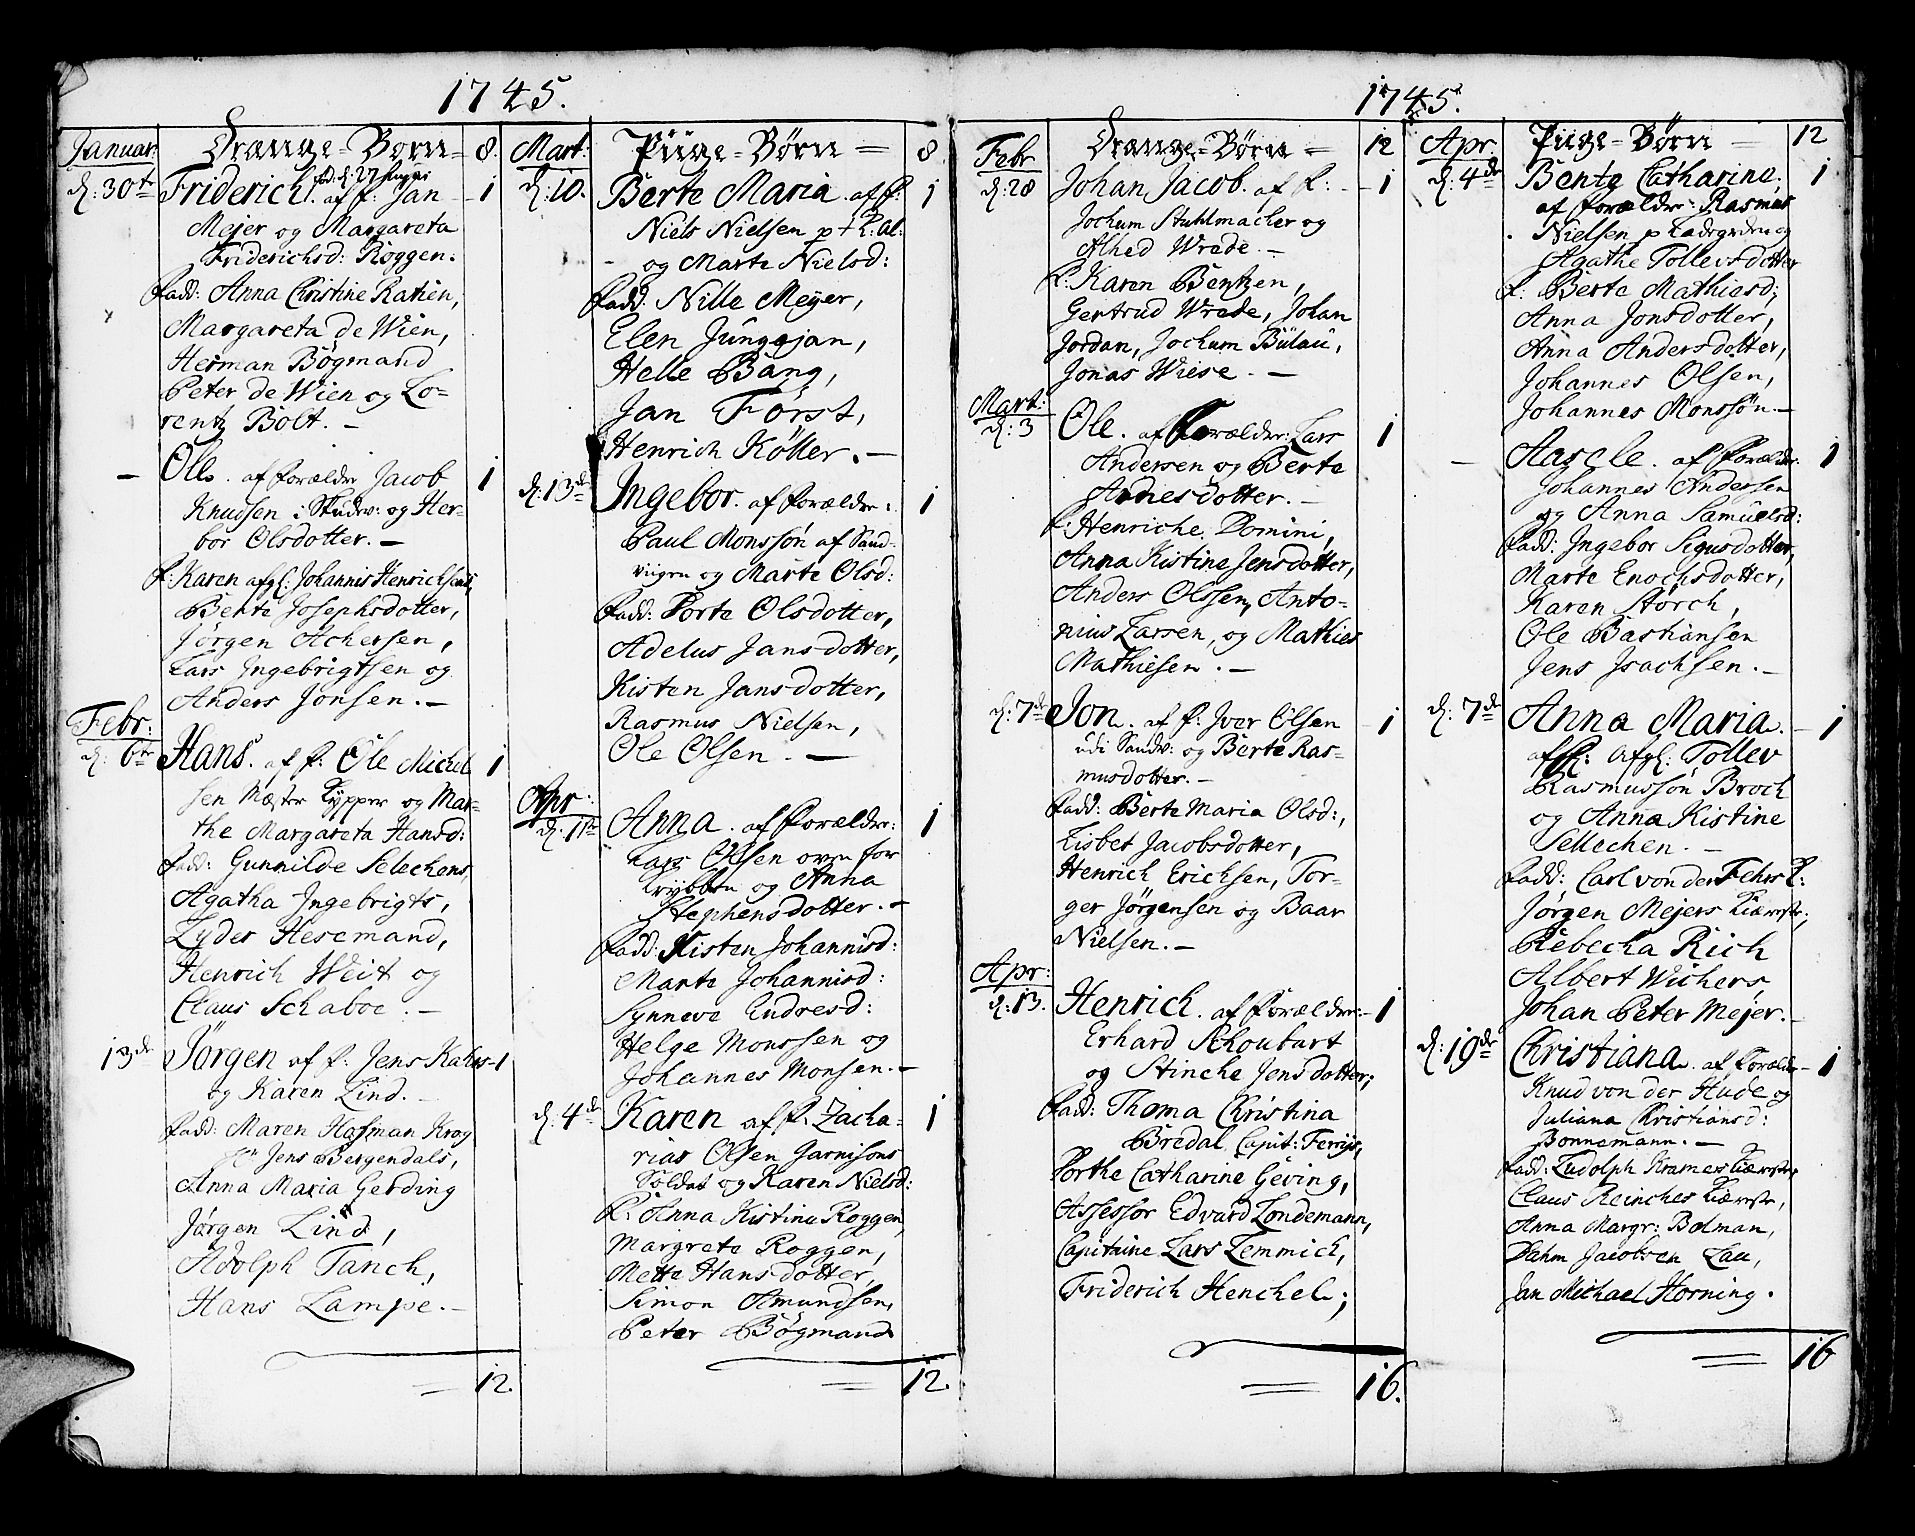 1745.
Januar:
Drænge-Børn
8.
d: 30te
Friderich. af f: Jan - 1
Mejer og Margareta
Friderichsd: Roggen.
fadd: Anna Christine Katien,
Margareta de Wien,
Herman Bögmand
Peter de Wien og Lo-
rentz Bolt. -
- Ole. af forældre Jacob 1
Knudsen i Studv: og Her-
bor Olsdotter. -
f: Karen afgl: Johannis Henrichsens,
Bente Josephsdotter,
Jørgen Achersen,
Lars Ingebrigtsen og
Anders Jonsen. -
Febr:
d: 6te
Hans. af f: Ole Michel 1
sen Mæster Kypper og Mar-
the Margareta Hansd:
fadd: Gunnilde Selechens,
Agatha Ingebrigts,
Lyder Hesemand,
Henrich Weit og
Claus Schaboe. -
13de
Jørgen af f: Jens Kahrs - 1
og Karen Lind. -
fadd: Maren Hasman Krog
Jens Bergendals,
Anna Maria Gerding
Jørgen Lind,
Adolph Tanch,
Hans Lampe. -
= 12.
Mart:
Piige-Børn =
8
d: 10.
Berte Maria af f: 1
Niels Nielsen
og Marte Nielsd:
fadd: Nille Meyer,
Elen Jüngejan,
Helle Bang,
Jan Først,
Henrich Köller. -
d: 13de
Ingebor. af forældre: 1
Paul Monssøn af Sand-
viigen og Marte Olsd:
fadd: Dorte Olsdotter,
Adelus Jansdotter,
Kisten Jansdotter,
Rasmus Nielsen,
Ole Olsen. -
Apr:
d: 11te
Anna. af forældre: 1
Lars Olsen oven for
Krybben og Anna
Stephensdotter. -
fadd: Kisten Johannisd:
Marte Johannisd:
Synneve Endresd:
Helge Monssen og
Johannes Monsen. -
d: 4de
Karen af f: Zacha- 1
rias Olsen Garnisons
Soldat og Karen Nielsd:
f: Anna Kistina Roggen,
Margrete Roggen,
Mette Hansdotter,
Simon Amundsen,
Peter Bögmand
= 12.
1745.
Febr
Drænge-Børn -
12
d: 28
Johan Jacob. af f: - 1
Jochum Stuhlmacher og
Alhed Wrede. -
f: Karen Bentzen,
Gertrud Wrede, Johan
Jordan, Jochum Bülau,
Jonas Wiese. -
Mart:
d: 3
Ole. af forældre: Lars 1
Andersen og Berte
Andiesdotter. -
f: Henriche Domini,
Anna Kistine Jensdotter,
Anders Olssen, Anto-
nius Larsen, og Mathies
Mathiesen. -
d: 7de
Jon. af f: Iver Olsen - 1
udi Sandv: og Berte Ras-
musdotter. -
fadd: Berte Maria Olsd:,
Lisbet Jacobsdotter,
Henrich Ericksen, Tor-
ger Jørgensen og Baar
Nielsen. -
Apr:
d: 13.
Henrich. af forælder: - 1
Erhard Schoubart
og Stinche Jensdotter;
fadd: Thoma Christina
Bredal Capit: Ferrijs,
Dorthe Catharine Geving,
Assessor Edvard Londemann,
Capitaine Lars Lemmich,
Friderich Henchel.;
= 16.
Apr:
Piige-Børn -
12
d: 4de
Bente Catharine; 1
af forældre: Rasmus
Nielsen p Ladegarden og
Agathe Tollevsdotter
f: Berte Mathiesd;
Anna Jonsdotter,
Anna Andersdotter,
Johannes Olsen,
Johannes Monssøn. -
- Aasele. af forældr. 1
Johannes Andersen
og Anna Samuelsd:
fadd: Ingebor Sigusdotter,
Marte Enochsdotter,
Karen Störch,
Ole Bastiansen
Jens Isachsen. -
d: 7de
Anna Maria. - 1
af f: Afgl: Tollev
Rasmussøn Broch
og Anna Kistine
Sellechen. -
fadd: Carl von der Fehrs K:
Jørgen Mejers Kiæreste,
Rebecka Rich
Albert Wichers
Johan Peter Mejer. -
d: 19de
Christiana. af forældre - 1
Knud von der Hude og
Juliana Christiansd:
Bonnemann. -
fadd: Ludolph Kramers Kiæreste,
Claus Reinches Kiæreste,
Anna Margr: Bolman,
Dahm Jacobsen Lau,
Jan Michael Horning.
= 16